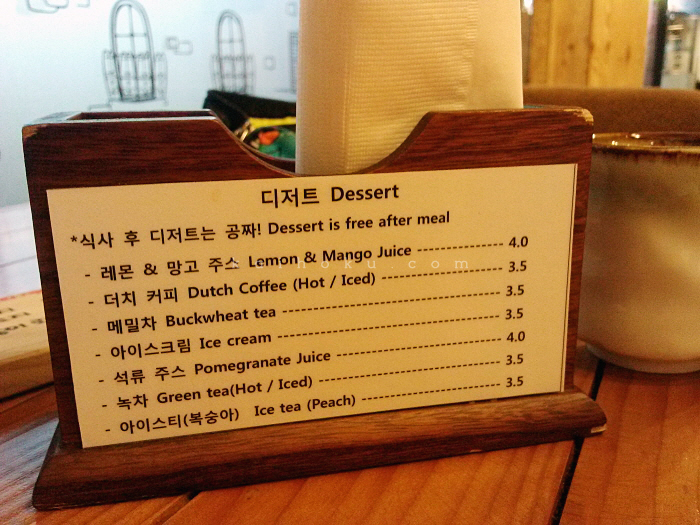 디저트 Dessert
*식사 후 디저트는 공짜! Dessert is free after meal
- 레몬 & 망고 주스 Lemon & Mango Juice ---------------- 4.0
- 더치 커피 Dutch Coffee (Hot / Iced) ---------------------- 3.5
- 메밀차 Buckwheat tea ---------------------------------------- 3.5
- 아이스크림 Ice cream ----------------------------------------- 3.5
- 석류 주스 Pomegranate Juice ------------------------------ 4.0
- 녹차 Green tea(Hot / Iced) --------------------------------- 3.5
- 아이스티(복숭아) Ice tea (Peach) -------------------------- 3.5